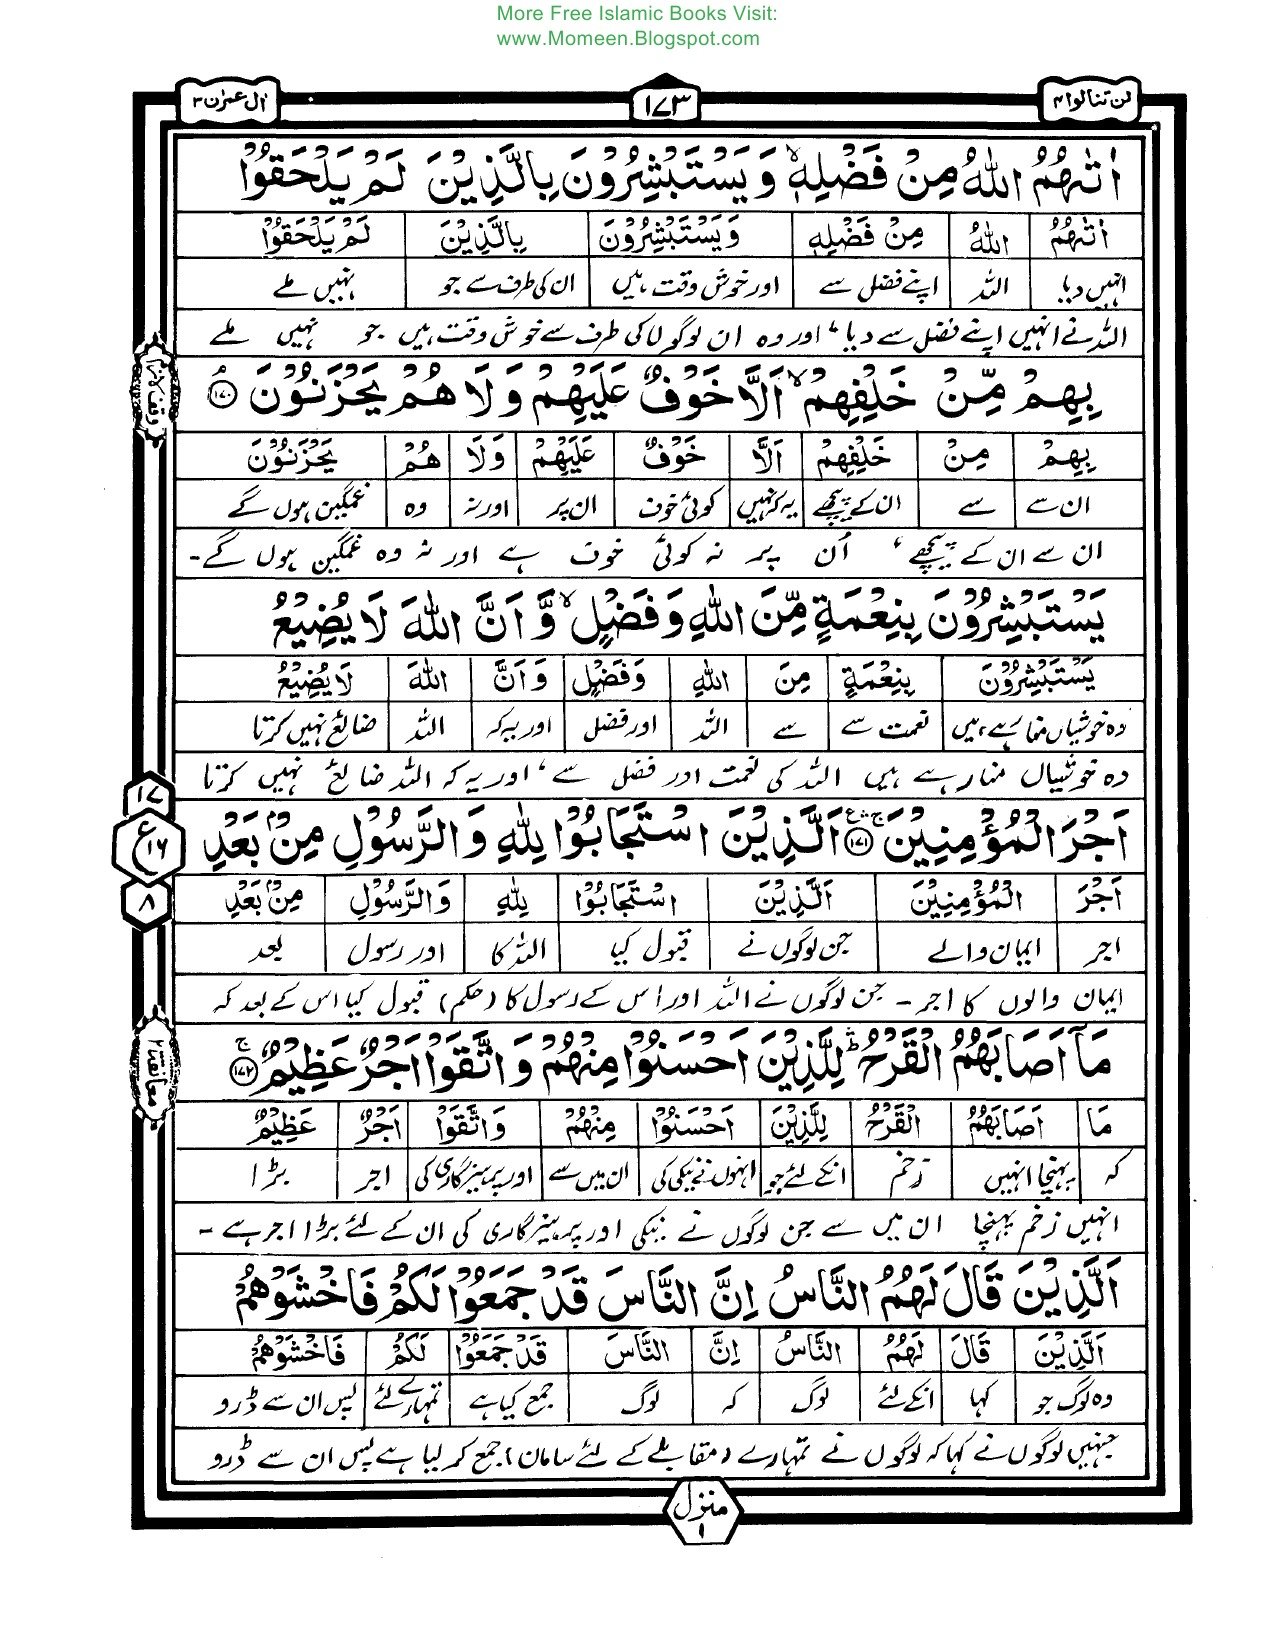 More Free Islamic Books Visit:
www.Momeen.Blogspot.com
لن تنالوا ۴ ۱۷۳ اٰل عمرٰن ۳
اٰتٰىهُمُ اللّٰهُ مِنْ فَضْلِهٖ ۙ وَيَسْتَبْشِرُوْنَ بِالَّذِيْنَ لَمْ يَلْحَقُوْا
اٰتٰىهُمُ اللّٰهُ مِنْ فَضْلِهٖ وَيَسْتَبْشِرُوْنَ بِالَّذِيْنَ لَمْ يَلْحَقُوْا
انہیں دیا اللہ اپنے فضل سے اور خوش وقت ہیں ان کی طرف سے جو نہیں ملے
اللہ نے انہیں اپنے فضل سے دیا، اور وہ ان لوگوں کی طرف سے خوش وقت ہیں جو نہیں ملے
بِهِمْ مِّنْ خَلْفِهِمْ ۙ اَلَّا خَوْفٌ عَلَيْهِمْ وَلَا هُمْ يَحْزَنُوْنَ ۘ ﴿۱۷۰﴾
بِهِمْ مِنْ خَلْفِهِمْ اَلَّا خَوْفٌ عَلَيْهِمْ وَلَا هُمْ يَحْزَنُوْنَ
ان سے سے ان کے پیچھے یہ کہ نہیں کوئی خوف ان پر اور نہ وہ غمگین ہوں گے
ان سے ان کے پیچھے، اُن پر نہ کوئی خوف ہے اور نہ وہ غمگین ہوں گے۔
يَسْتَبْشِرُوْنَ بِنِعْمَةٍ مِّنَ اللّٰهِ وَفَضْلٍ ۙ وَّاَنَّ اللّٰهَ لَا يُضِيْعُ
يَسْتَبْشِرُوْنَ بِنِعْمَةٍ مِنَ اللّٰهِ وَفَضْلٍ وَاَنَّ اللّٰهَ لَا يُضِيْعُ
وہ خوشیاں منا رہے ہیں نعمت سے سے اللہ اور فضل اور یہ کہ اللہ ضائع نہیں کرتا
وہ خوشیاں منا رہے ہیں اللہ کی نعمت اور فضل سے، اور یہ کہ اللہ ضائع نہیں کرتا
اَجْرَ الْمُؤْمِنِيْنَ ﴿۱۷۱﴾ اَلَّذِيْنَ اسْتَجَابُوْا لِلّٰهِ وَالرَّسُوْلِ مِنْۢ بَعْدِ
۱۷
ع ۱۶
۸
اَجْرَ الْمُؤْمِنِيْنَ اَلَّذِيْنَ اسْتَجَابُوْا لِلّٰهِ وَالرَّسُوْلِ مِنْۢ بَعْدِ
اجر ایمان والے جن لوگوں نے قبول کیا اللہ کا اور رسول بعد
ایمان والوں کا اجر۔ جن لوگوں نے اللہ اور اس کے رسول کا (حکم) قبول کیا اس کے بعد کہ
مَاۤ اَصَابَهُمُ الْقَرْحُ ؕ لِلَّذِيْنَ اَحْسَنُوْا مِنْهُمْ وَاتَّقَوْا اَجْرٌ عَظِيْمٌ ۚ ﴿۱۷۲﴾
مَا اَصَابَهُمُ الْقَرْحُ لِلَّذِيْنَ اَحْسَنُوْا مِنْهُمْ وَاتَّقَوْا اَجْرٌ عَظِيْمٌ
کہ پہنچا انہیں زخم انکے لئے جو انہوں نے نیکی کی ان میں سے اور پرہیزگاری کی اجر بڑا
انہیں زخم پہنچا ان میں سے جن لوگوں نے نیکی اور پرہیزگاری کی ان کے لئے بڑا اجر ہے۔
اَلَّذِيْنَ قَالَ لَهُمُ النَّاسُ اِنَّ النَّاسَ قَدْ جَمَعُوْا لَكُمْ فَاخْشَوْهُمْ
اَلَّذِيْنَ قَالَ لَهُمُ النَّاسُ اِنَّ النَّاسَ قَدْ جَمَعُوْا لَكُمْ فَاخْشَوْهُمْ
وہ لوگ جو کہا انکے لئے لوگ کہ لوگ جمع کیا ہے تمہارے لئے پس ان سے ڈرو
جنہیں لوگوں نے کہا کہ لوگوں نے تمہارے (مقابلے کے لئے سامان) جمع کر لیا ہے پس ان سے ڈرو
منزل ۱